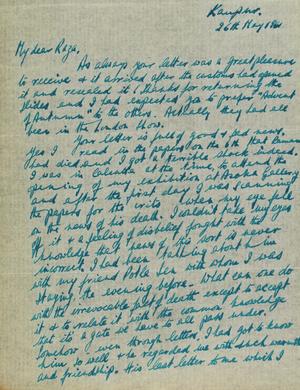 Kanpur.
26th May 1961
My dear Raza,
As always your letter was a great pleasure
to receive & it arrived after the customs had opened
it and resealed it! Thanks for returning the
slides and I had expected you to prefer "Advent
of Autumn" to the others. Actually they had all
been in the London show.
Your letter is full of good & bad news.
Yes I read in the papers on the 6th that
had died and I got a terrible shock indeed.
I was in Calcutta at the time to attend the
opening of my exhibition at Ashoka Gallery
and after the first day I was scanning
the papers for the crits when my eye fell
on the news of his death. I couldn't take my eyes
off it & a feeling of disbelief fought with the
knowledge that news of his sort is never
incorrect. I had been talking about him
with my friend Sen with whom I was
staying the evening before. What can one do
with the irrevocable fact of death except to accept
it & to relate it with the common knowledge
that it's a gate we have to all pass under.
Somehow even through letters, I had got to know
him so well & he regarded me with such warmth
and friendship. His last letter to me which I